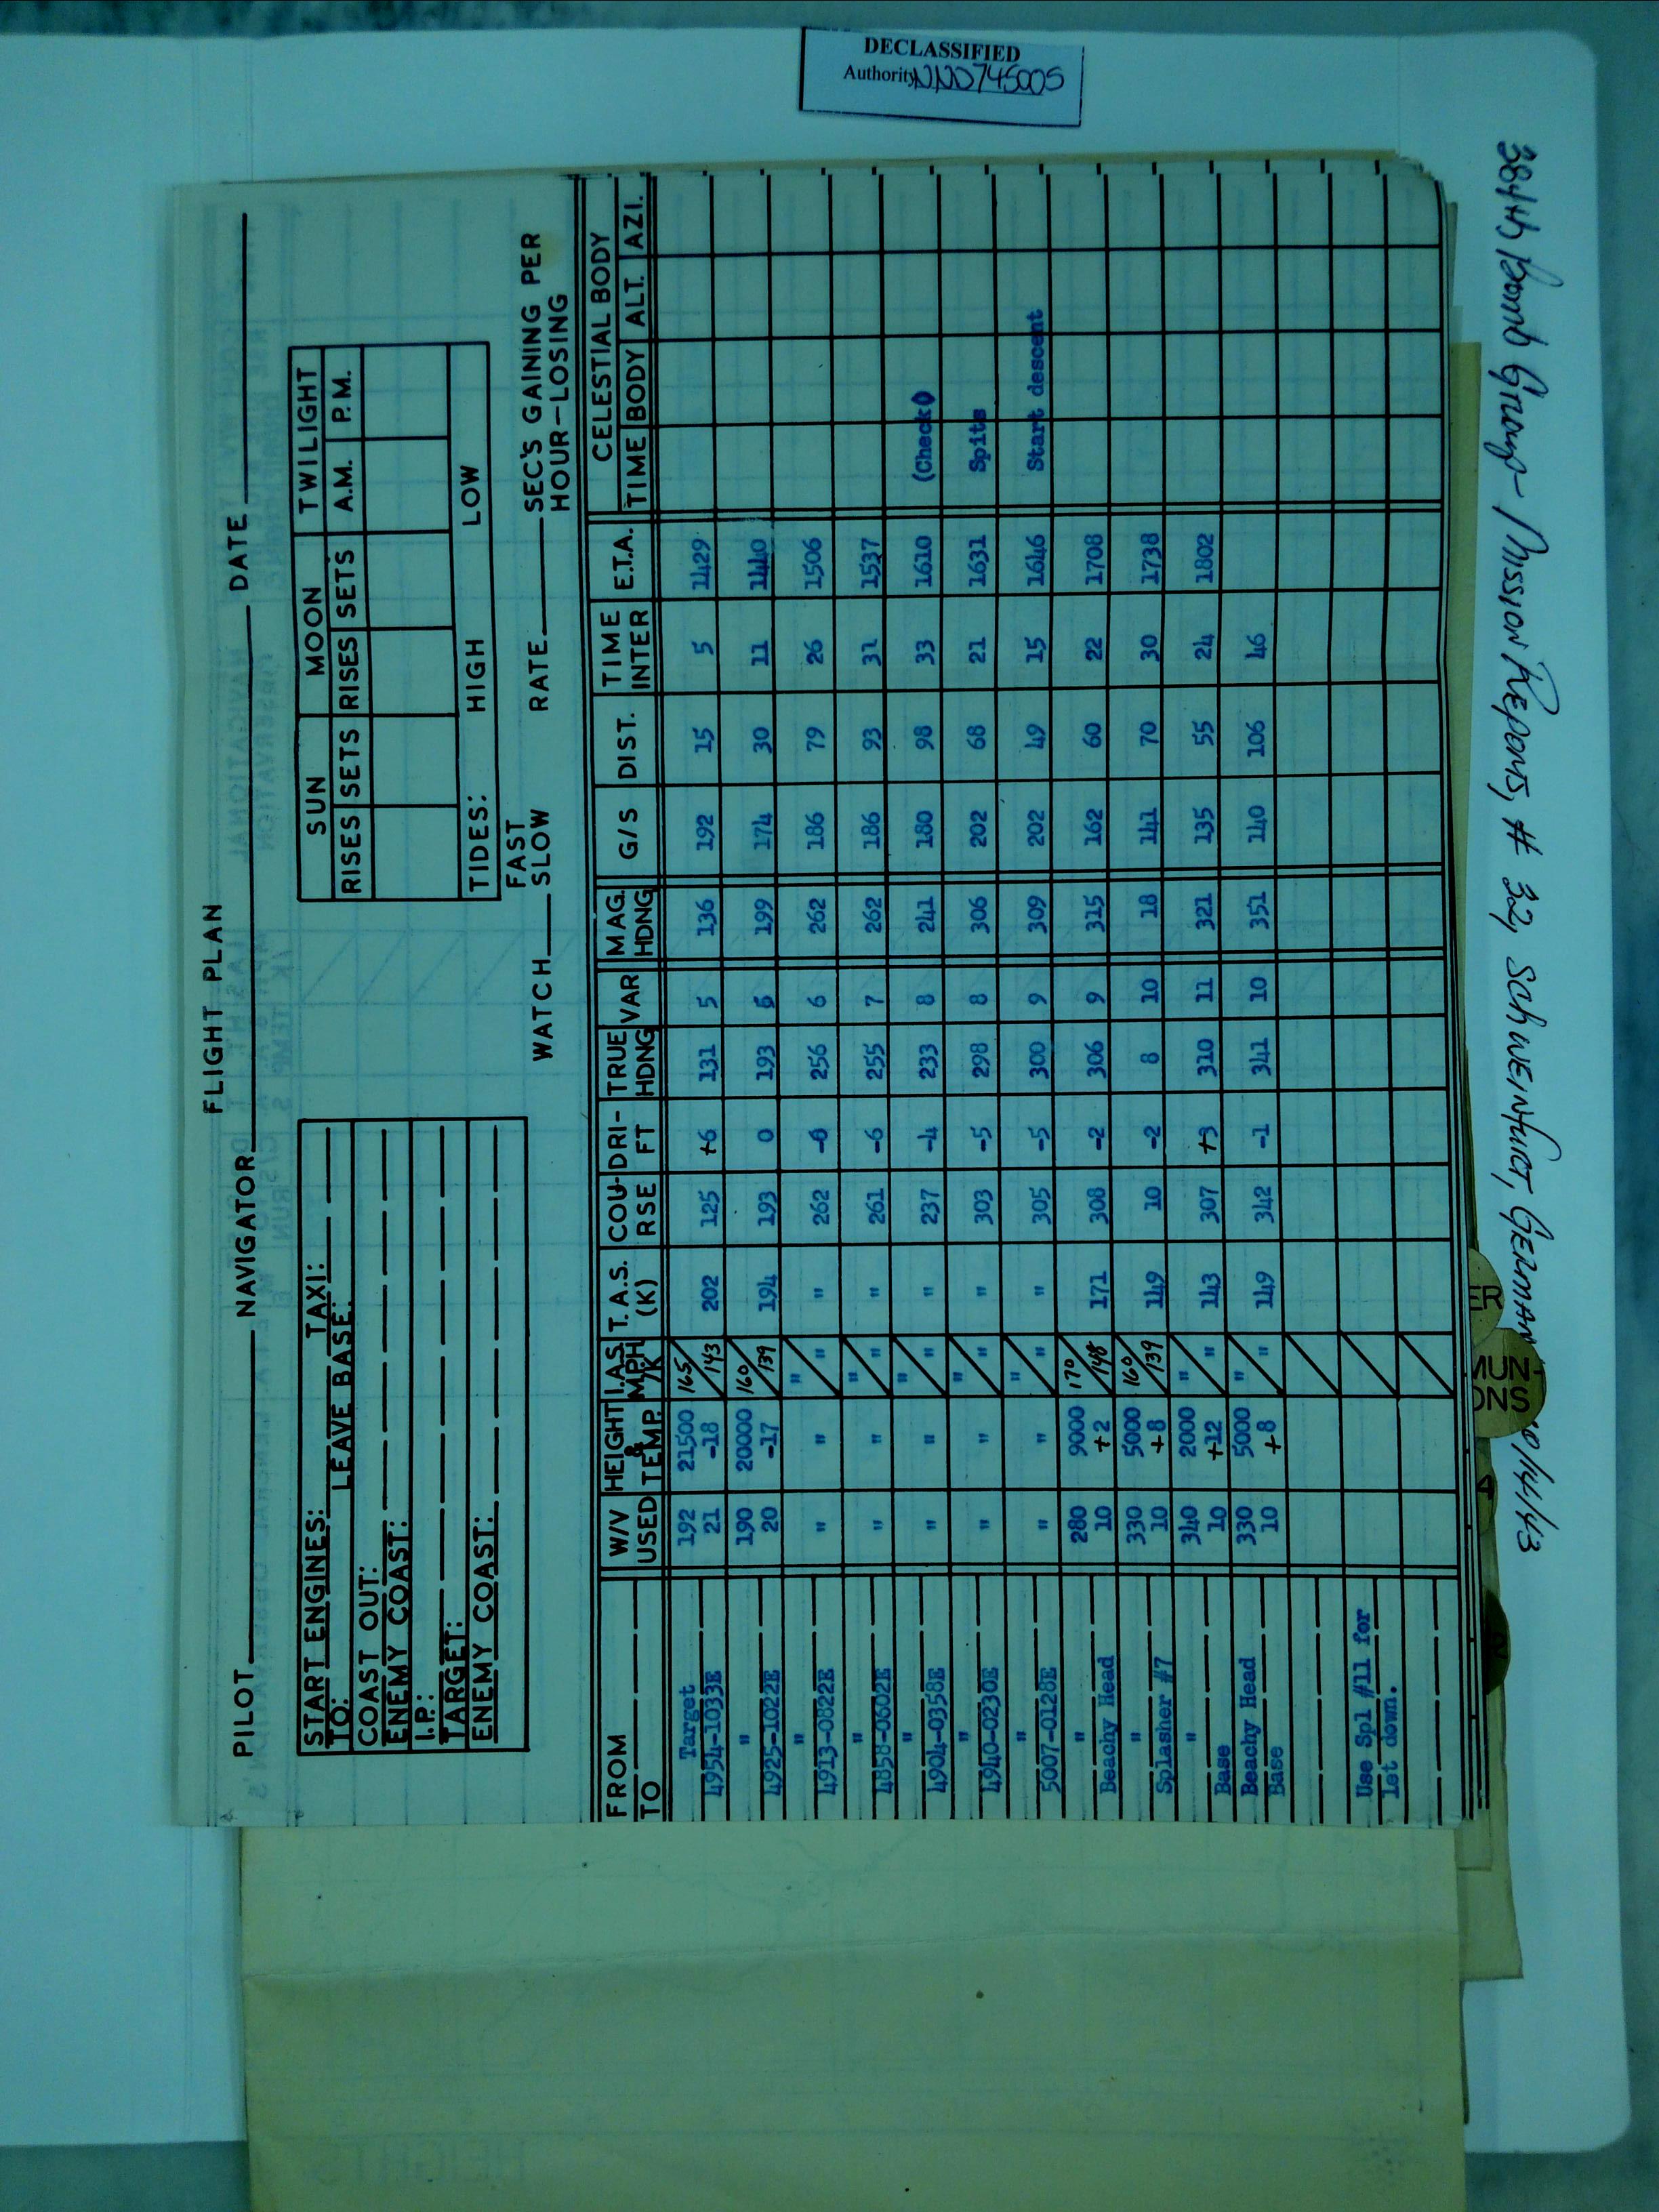 DECLASSIFIED
Authority NND745005
384th Bomb Group- Mission Reports, # 32, Schweinfurt, Germany 10/14/43
FLIGHT PLAN
PILOT NAVIGATOR DATE
START ENGINES: TAXI:
TO: LEAVE BASE:
COAST OUT:
ENEMY COAST:
I.P.:
TARGET:
ENEMY COAST:
SUN MOON TWILIGHT
RISES SETS RISES SETS A.M. P.M.
TIDES: HIGH LOW
WATCH FAST SLOW RATE SEC'S GAINING PER HOUR-LOSING
FROM TO W/V USED HEIGHT & TEMP. I.A.S. MPH/K T.A.S. (K) COU-RSE DRI-FT TRUE HDNG VAR MAG. HDNG G/S DIST. TIME INTER E.T.A. CELESTIAL BODY
TIME BODY ALT. AZI.
Target 192 21500 165
4954-1033E 21 -18 143 202 125 +6 131 5 136 192 15 5 1429
" 190 20000 160
4925-1022E 20 -17 139 194 193 0 193 6 199 174 30 11 1440
" "
4913-0822E " " " " 262 -6 256 6 262 186 79 26 1506
" "
4858-0602E " " " " 261 -6 255 7 262 186 93 31 1537
" "
4904-0358E " " " " 237 -4 233 8 241 180 98 33 1610 (Check)
" "
4940-0230E " " " " 303 -5 298 8 306 202 68 21 1631 Spits
" "
5007-0128E " " " " 305 -5 300 9 309 202 49 15 1646 Start descent
" 280 9000 170
Beachy Head 10 +2 148 171 308 -2 306 9 315 162 60 22 1708
" 330 5000 160
Splasher #7 10 +8 139 149 10 -2 8 10 18 141 70 30 1738
" 340 2000 "
Base 10 +12 " 143 307 +3 310 11 321 135 55 24 1802
Beachy Head 330 5000 "
Base 10 +8 " 149 342 -1 341 10 351 140 106 46
Use Spl #11 for
let down.
ER
MUN
ONS